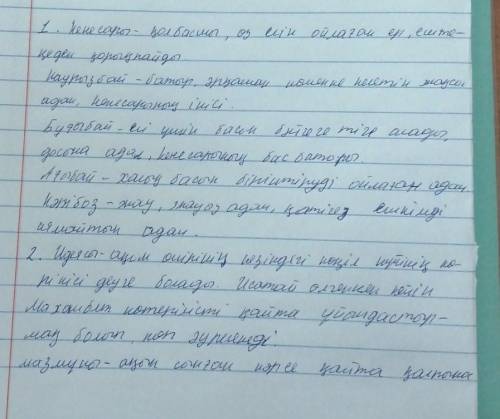 1. Кенесары - қолбасшы, өз елін ойлаған ер, еште-
ңеден қорықпайды.
Наурызбай - батыр, әрқашан көмекке келетін жақсы
адам, Кенесарының інісі.
Бұқарбай - елі үшін басын бәйгеге тіге алады,
досына адал, Кенесарының бас батыры.
Ағыбай - халық басын біріктіруді ойлаған адам.
- жау, жауыз адам, қатігез ешкімді
аямайтын адам.
2. Идеясы - ақын өмірінің кезіндегі көңіл күйінің кө-
рінісі деуге болады. Исатай өлгеннен кейін
Махамбет көтерілісті қайта ұйымдастыр-
мақ болып, көп әуреленді
мазмұны - ақын сынған нәрсе қайта қалпына